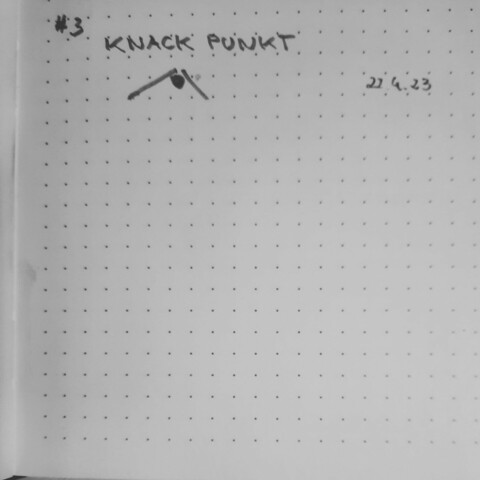 #3
KNACK PUNKT
22 4.23